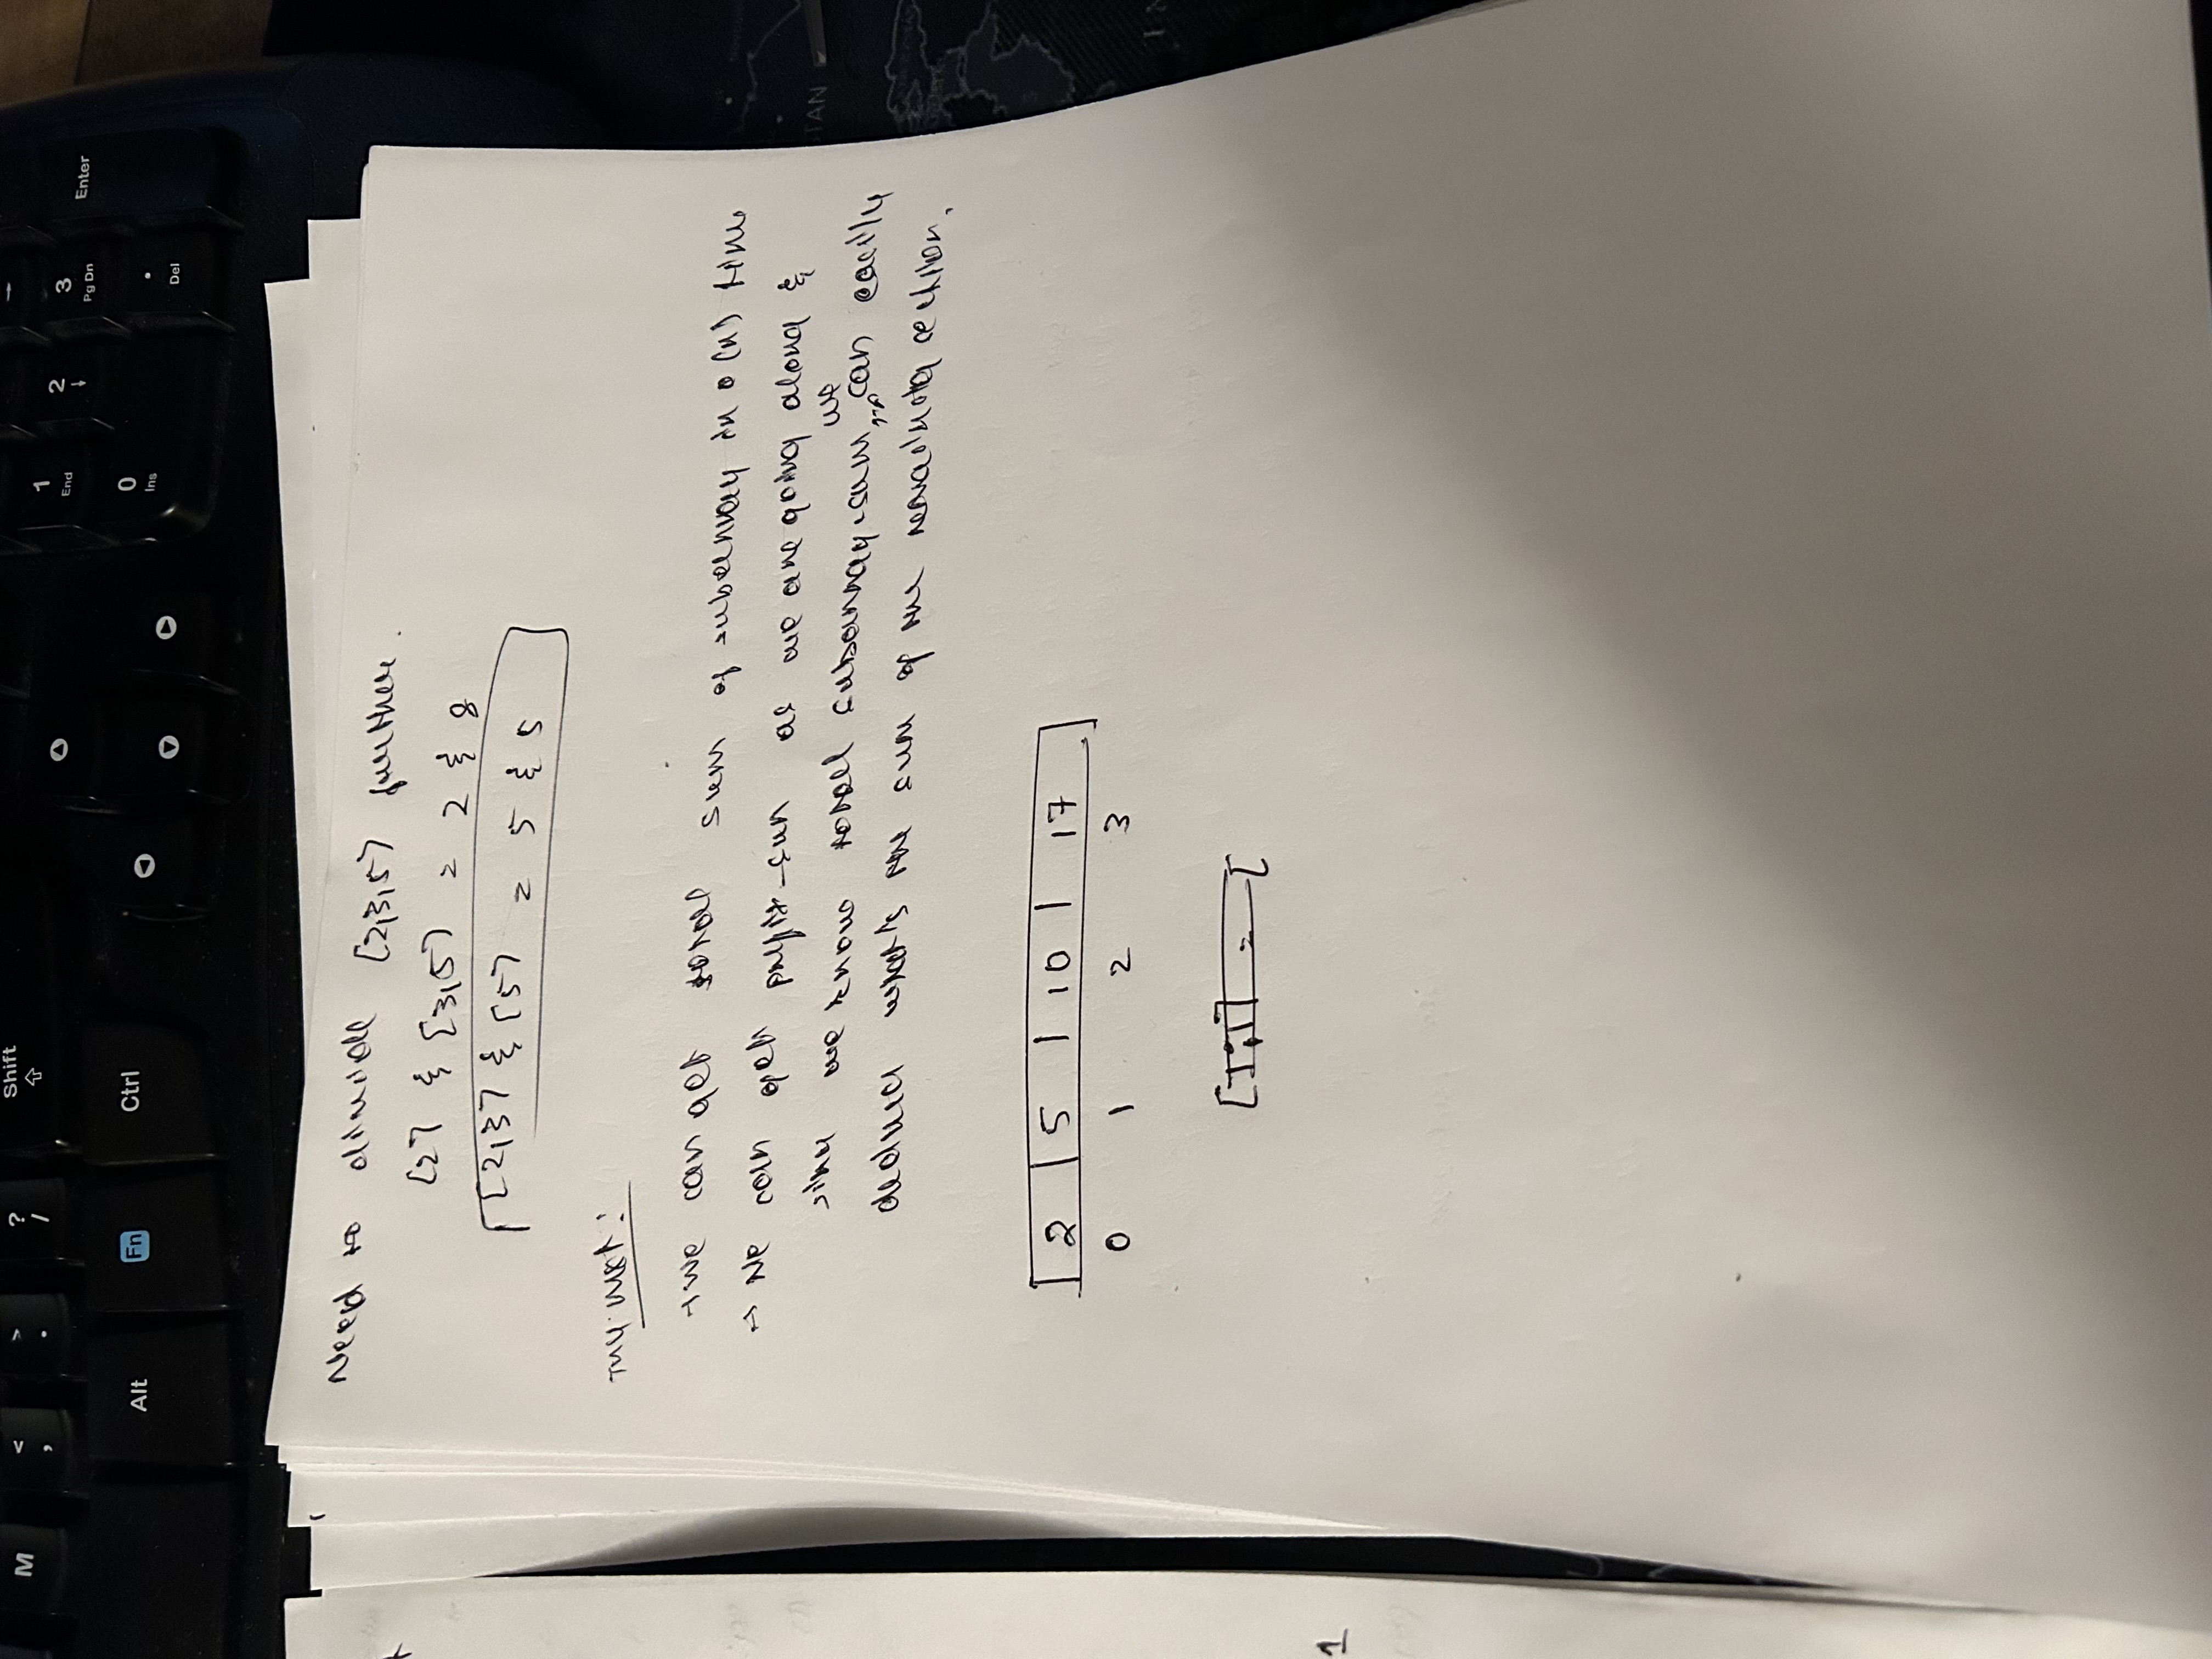 M < , > . ? / Shift
1 End 2 3 Pg Dn Enter
Alt Fn Ctrl 0 Ins . Del
Need to divide [2,3,5] further.
[2] & [3,5] = 2 & 8
[2,3] & [5] = 5 & 5
→ we can get total sum of subarray in o(n) time
→ we can get prefix-sum as we are going along &
since we know total subarray sum, we can easily
deduce what's the sum of the remaining section.
2 5 10 17
0 1 2 3
1
TAN